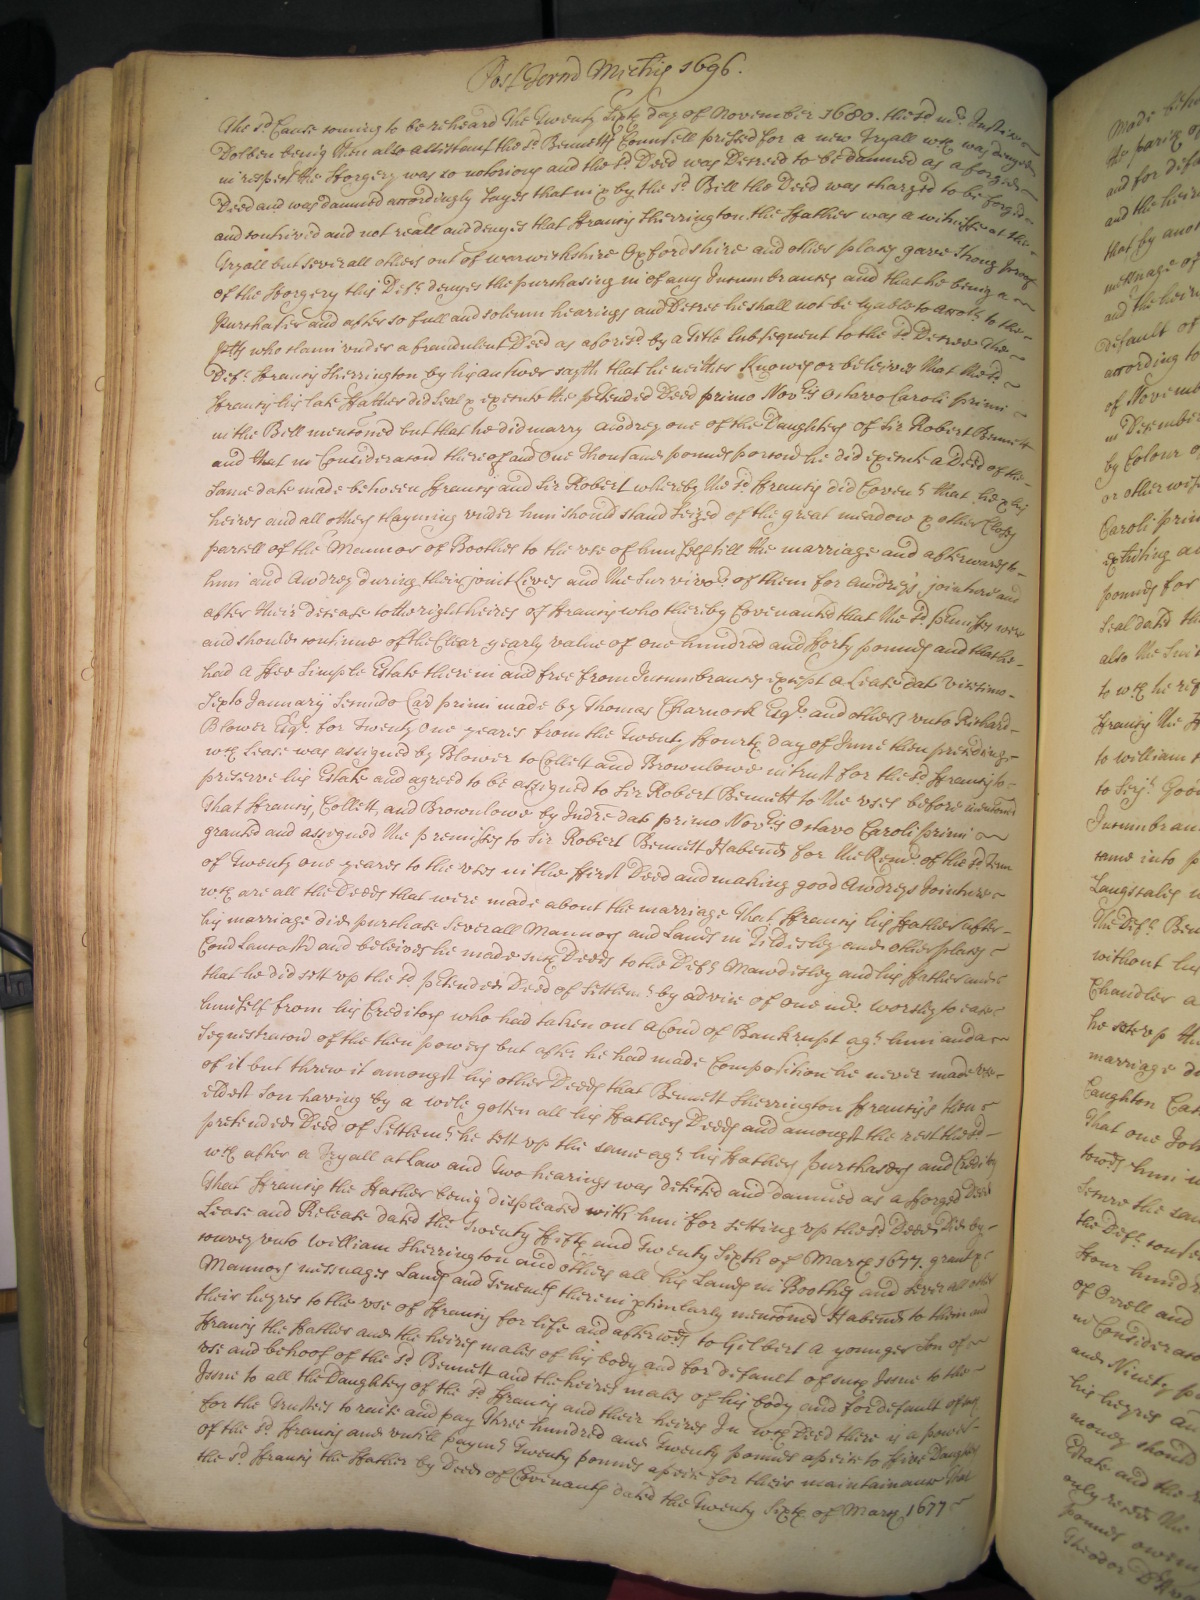 Post Termd Michis 1696.
The sd Cause coming to be reheard The Twenty Sixth day of November 1680. the sd mr. Justice
Dolben being then also assistant the sd Bennetts Councell pressed for a new Tryall wch was denyed
in respect the fforgery was so notorious and the sd Deed was Decreed to be damned as a forged
Deed and was damned accordingly Sayes that in & by the sd Bill the Deed was charged to be forged
and contrived and not reall and denyes that ffrancis Sherrington the ffather was a witnesse at the
Tryall but severall others out of warwickshire Oxfordshire and other places gave strong proof
of the fforgery this Deft. denyes the purchasing in of any Incumbrances and that he being a
Purchaser and after so full and solemn hearings and Decree he shall not be lyable to accot. to the
Plts who claim under a fraudulent Deed as aforesd by a title subsequent to the sd Decree The
Deft. ffrancis Sherrington by his answer sayth that he neither knowes or beleives that the sd
ffrancis his late ffather did seal & execute the pretended Deed primo Novbris Octavo Caroli primi
in the Bill mentoned but that he did marry Awdrey one of the Daughters of Sir Robert Bennett
and that in Consideraton thereof and One thousand pounds porton he did execute a Deed of the
same date made between ffrancis and Sir Robert whereby the sd ffrancis did Covent. that he & his
heires and all others clayming under him should stand seized of the great meadow & other Closes
parcell of the Mannor of Boothes to the use of himself till the marriage and afterwards to
him and Awdrey during their joint Lives and the Survivor. of them for Awdrey's jointure and
after their decease to the right heires of ffrancis who thereby Covenanted that the sd premisses were
and should continue of the Clear yearly value of one hundred and fforty pounds and that he
had a ffee Simple Estate therein and free from Incumbrances except a Lease dat vicesimo
Sexto January Secundo Car primi made by Thomas Charnock Esqr. and others unto Richard
Blower Esqr. for Twenty One yeares from the Twenty ffourth day of June then preceding
wch Lease was assigned by Blower to Collett and Brownlowe in trust for the sd ffrancis to
preserve his Estate and agreed to be assigned to Sir Robert Bennett to the uses before mentoned
That ffrancis, Collett, and Brownlowe by Indre dat primo Novbris Octavo Caroli primi
granted and assigned the premisses to Sir Robert Bennett Habend for the Remr. of the sd term
of Twenty one yeares to the uses in the ffirst Deed and making good Awdreys Jointure
wch are all the Deeds that were made about the marriage That ffrancis his ffather after
his marriage did purchase severall Mannors and Lands in Tildisley and other places
Cond Lancastrd and beleives he made such Deeds to the Deft. Mawdisley and his ffather and
that he did sett up the sd pretended Deed of Settlemt. by advice of one mr. Worsley to ease
himself from his Creditors who had taken out a Cond of Bankrupt agt. him and a
Sequestracon of the then powers but after he had made Composition he never made use
of it but threw it amongst his other Deeds that Bennett Sherrington ffrancis's then
eldest Son having by a wile gotten all his ffathers Deeds and amongst the rest the sd
pretended Deed of Settlemt. he sett up the same agt. his ffathers purchasers and Creditrs
wch after a Tryall at Law and Two hearings was detected and damned as a fforged Deed
That ffrancis the ffather being displeased with him for setting up the sd Deed did by
Lease and Release dated the Twenty ffifth and Twenty Sixth of March 1677. grant &
convey unto William Sherrington and others all his Lands in Boothes and severall other
Mannors messuages Lands and Tenemts therein pticularly mentioned Habend to them and
their heyres to the use of ffrancis for life and afterwds to Gilbert a younger Son of
ffrancis the ffather and the heires males of his body and for default of such Issue to the
use and behoof of the sd Bennett and the heires males of his body and for default of such
Issue to all the Daughters of the sd ffrancis and their heires In wch Deed there is a power
for the Trustees to raise and pay Three hundred and Twenty pounds apeice to five Daughters
of the sd ffrancis and untill paymt. Twenty pounds apeice for their maintainance That
the sd ffrancis the ffather by Deed of Covenants dated the Twenty Sixth of March 1677